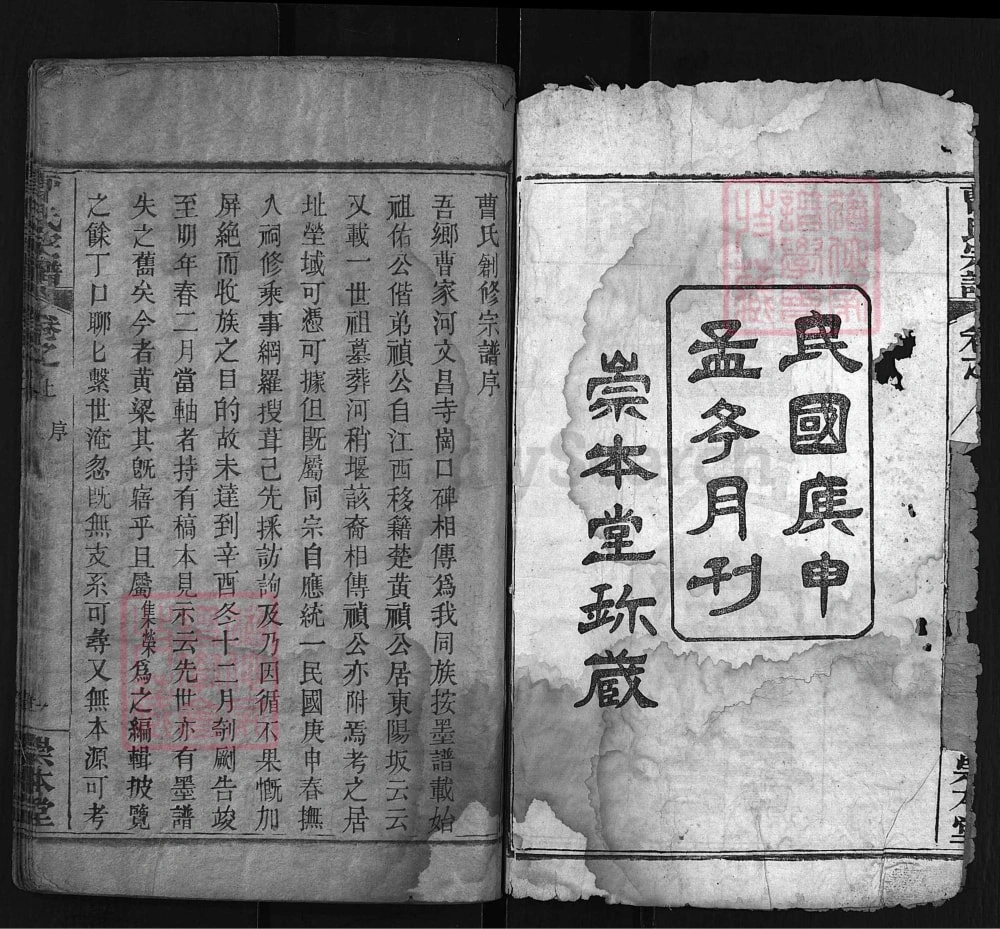 民國庚申
孟冬月刊
崇本堂珎藏
曹氏宗譜
崇本堂
曹氏創修宗譜序
吾鄉曹家河文昌寺崗口碑相傳爲我同族按墨譜載始
祖佑公偕弟禎公自江西移籍楚黃禎公居東陽坂云云
又載一世祖墓葬河稍堰該裔相傳禎公亦附焉考之居
址塋域可憑可據但旣屬同宗自應統一民國庚申春撫
人祠修乘事綱羅搜葺己先採訪詢及乃因循不果慨加
屏絕而收族之目的故未達到辛酉冬十二月剞劂告竣
至明年春二月當軸者持有稿本見示云先世亦有墨譜
失之舊矣今者黃梁其旣寤乎且屬集榮爲之編輯披覽
之餘丁口聊匕繫世淹忽旣無支系可尋又無本源可考
曹氏宗譜
卷之上
序
崇本堂